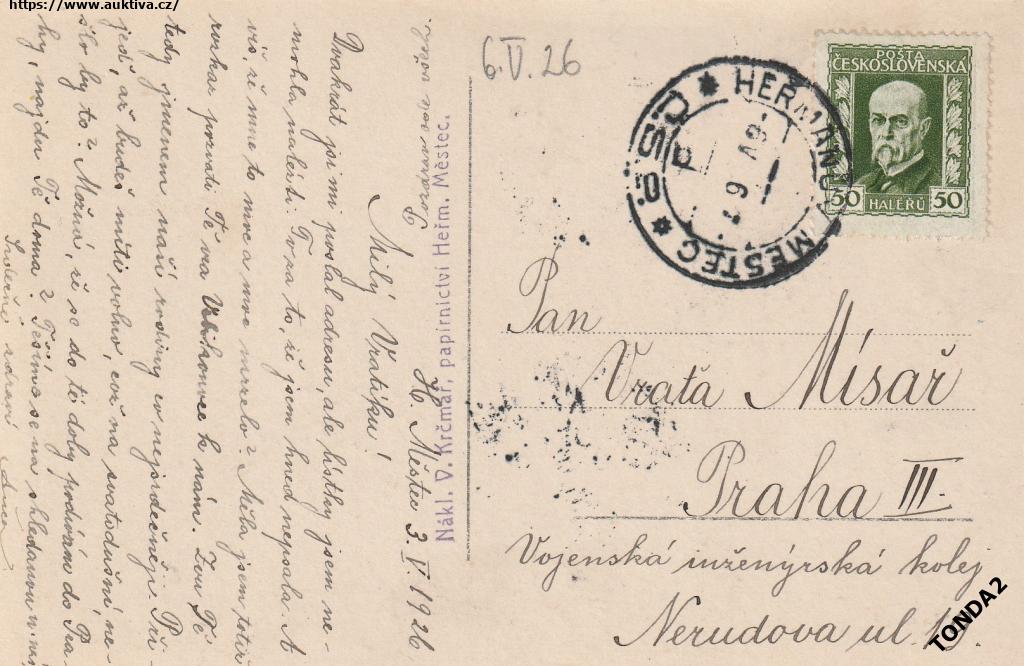 https://www.auktiva.cz/
6.V.26
POŠTA
ČESKOSLOVENSKA
50 HALÉŘŮ 50
HEŘMANŮV MĚSTEC
ČSR
Pan
Vraťa Mísař
Praha III.
Vojenská inženýrská kolej
Nerudova ul.
TONDA2
Nákl. V. Krčmář, papírnictví Heřm. Městec.
Pozdrav od
H. Městec 3.V.1926
Milý Vratíku!
Dvakrát jsi mi poslal adresu, ale lístky jsem ne-
mohla nalézti. Tvá to, že jsem hned nepsala. A
víš, že mne to mrzelo? Měla jsem totiž
pozvati Tě k nám. Zvu Tě
tedy jménem naší rodiny co nejsrdečněji. Při-
jeď, až budeš míti volno, což na svatodušní, ne-
šlo by to? Možná, že se do té doby podívám do Pra-
hy, najdu Tě doma? Těším se na shledanou a
Srdečné zdraví